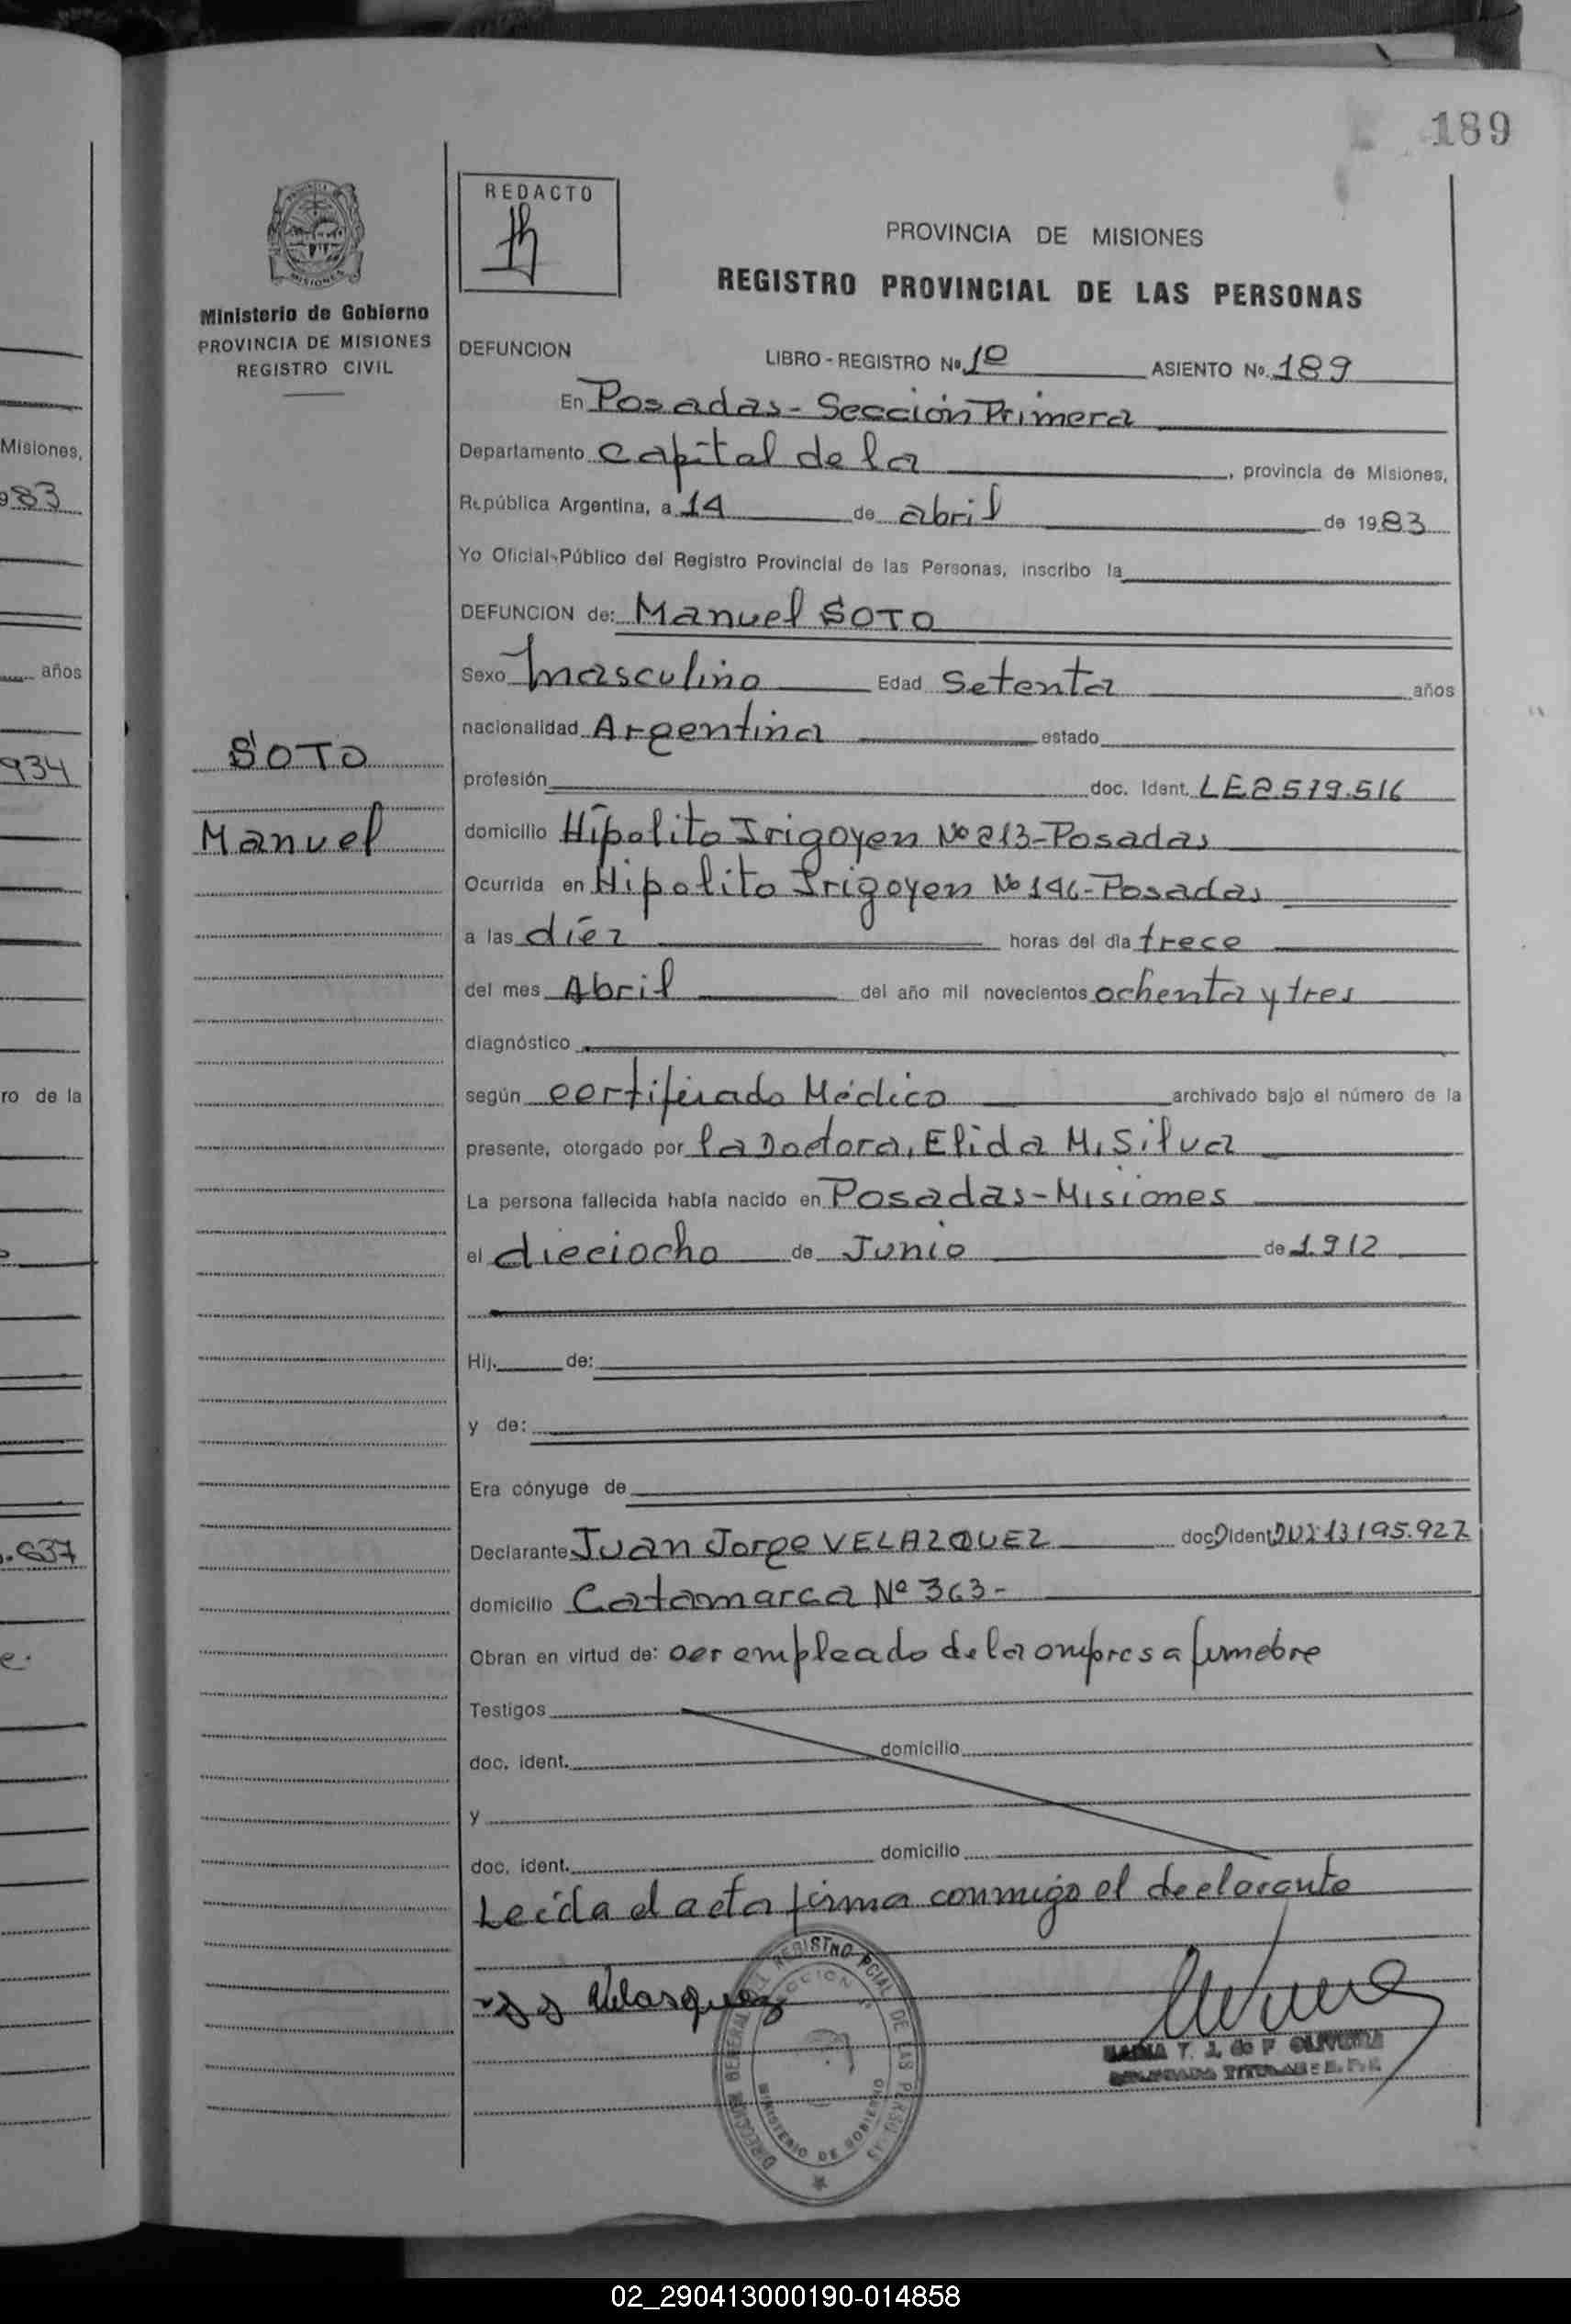 189
REDACTO
PROVINCIA DE MISIONES
REGISTRO PROVINCIAL DE LAS PERSONAS
MISIONES
Ministerio de Gobierno
PROVINCIA DE MISIONES
REGISTRO CIVIL
DEFUNCION LIBRO - REGISTRO No. 1º ASIENTO No. 189
En Posadas - Sección Primera
Departamento Capital de la, provincia de Misiones,
República Argentina, a 14 de abril de 1983
Yo Oficial Público del Registro Provincial de las Personas, inscribo la
DEFUNCION de: Manuel SOTO
Sexo masculino Edad Setenta años
nacionalidad Argentina estado
SOTO
Manuel
profesión doc. Ident. LE 2.579.516
domicilio Hipolito Irigoyen Nº 213-Posadas
Ocurrida en Hipolito Irigoyen Nº 146-Posadas
a las diéz horas del día trece
del mes Abril del año mil novecientos ochenta y tres
diagnóstico
según certificado Médico archivado bajo el número de la
presente, otorgado por la Doctora, Elida M. Silva
La persona fallecida había nacido en Posadas-Misiones
el dieciocho de Junio de 1912
Hij. de:
y de:
Era cónyuge de
Declarante Juan Jorge VELAZQUEZ doc. Ident. 13.195.927
domicilio Catamarca Nº 363-
Obran en virtud de: ser empleado de la empresa funebre
Testigos
doc. ident. domicilio
y
doc. ident. domicilio
Leída el acta firma conmigo el declarante
Velasquez
DIRECCION GENERAL DEL REGISTRO PCIAL DE LAS PERSONAS
MINISTERIO DE GOBIERNO
MARIA T. J. de F OLIVEIRA
Misiones,
983
años
934
ro de la
.637
e.
02_290413000190-014858